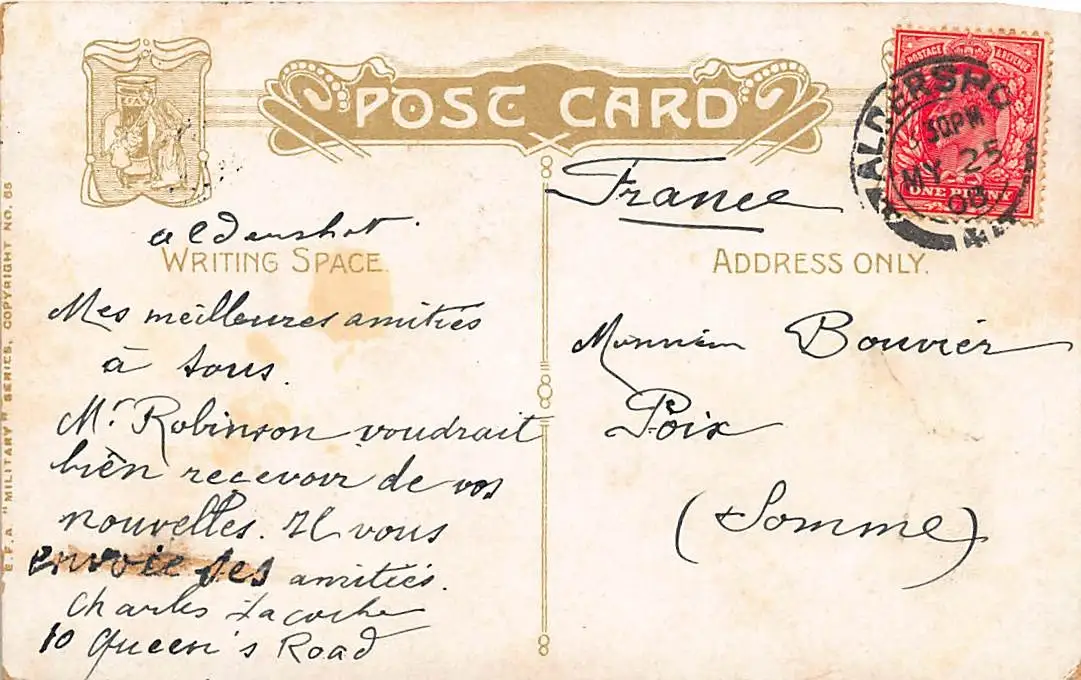 POST CARD
POSTAGE & REVENUE
ALDERSHO
30PM
MY 25
08
ONE PENNY
France
Aldershot.
WRITING SPACE.
ADDRESS ONLY.
Mes meilleures amitiés
à tous.
Mr Robinson voudrait
bien recevoir de vos
nouvelles. Il vous
envoie ses amitiés.
Charles
10 Queen's Road
Monsieur Bouvier
Poix
(Somme)
E.F.A "MILITARY" SERIES, COPYRIGHT NO. 65